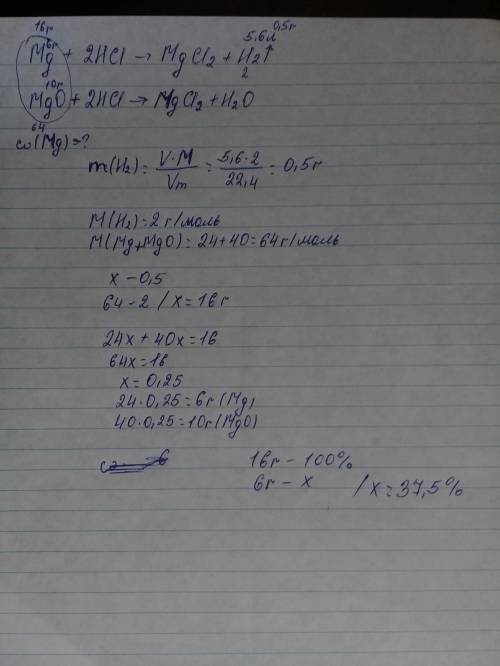 16г 5,6л 0,5г
6г
Mg + 2HCl → MgCl2 + H2↑
2
10г
MgO + 2HCl → MgCl2 + H2O
64
ω(Mg)=?
m(H2) = V·M / Vm = 5,6·2 / 22,4 = 0,5г
M(H2) = 2 г/моль
M(Mg+MgO) = 24+40=64г/моль
x – 0,5
64 – 2 / x = 16г
24x + 40x = 16
64x = 16
x = 0,25
24·0,25 = 6г (Mg)
40·0,25 = 10г (MgO)
16г – 100%
6г – x / x = 37,5%